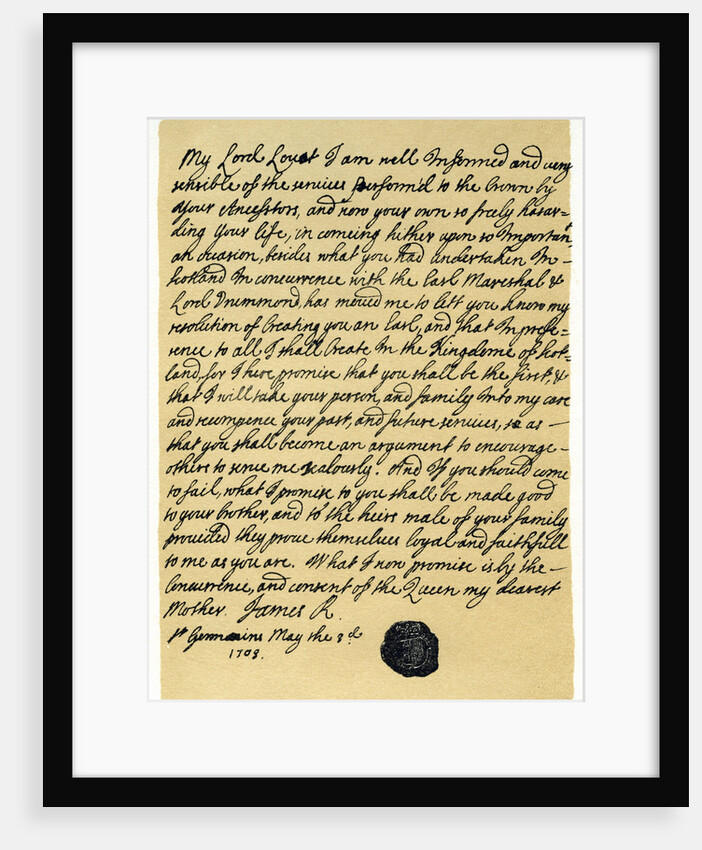 My Lord Lovat I am well Informed and very
sensible of the services perform'd to the Crown by
your Ancestors, and now your own so freely hasar=
ding your life, in comeing hither upon so Important
an occasion, besides what you had undertaken In—
Scotland In concurrence with the Earl Mareshal &
Lord Drummond, has moued me to lett you know my
resolution of Creating you an Earl, and that In prefe=
rence to all I shall Create In the Kingdome of Scot-
land, for I here promise that you shall be the first, &
that I will take your person, and family Into my care
and recompence your past, and future services, so as —
that you shall become an argument to encourage –
others to serue me zealously. And If you should come
to fail, what I promise to you shall be made good
to your brother, and to the heirs male of your family
prouided they proue themselues loyal and faithfull
to me as you are. What I now promise is by the —
Concurrence, and consent of the Queen my dearest
Mother. James R.
St Germains May the 3d
1703.